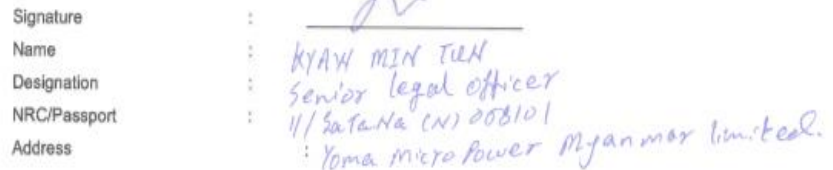 Signature :
Name : KYAW MIN TUN
Designation : Senior legal officer
NRC/Passport : 11/SaTaNa (N) 008101
Address : Yoma Micro Power Myanmar limited.